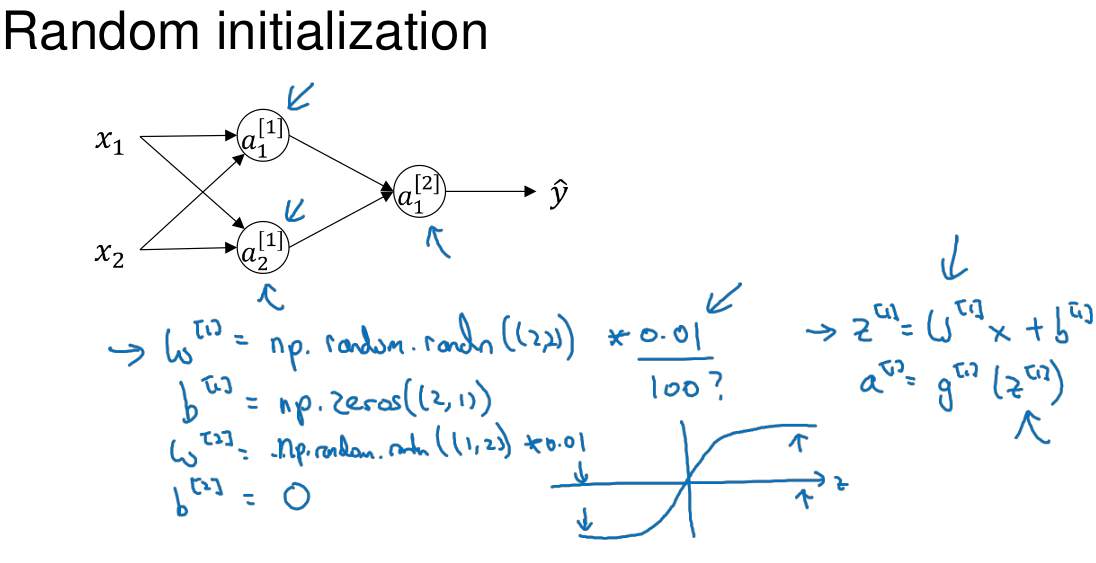 Random initialization
x₁
a₁^[1]
x₂
a₂^[1]
a₁^[2]
ŷ
→ W^[1] = np.random.randn((2,2)) * 0.01
100?
b^[1] = np.zeros((2,1))
W^[2] = np.random.randn((1,2)) * 0.01
b^[2] = 0
→ z^[1] = W^[1] x + b^[1]
a^[1] = g^[1](z^[1])
z